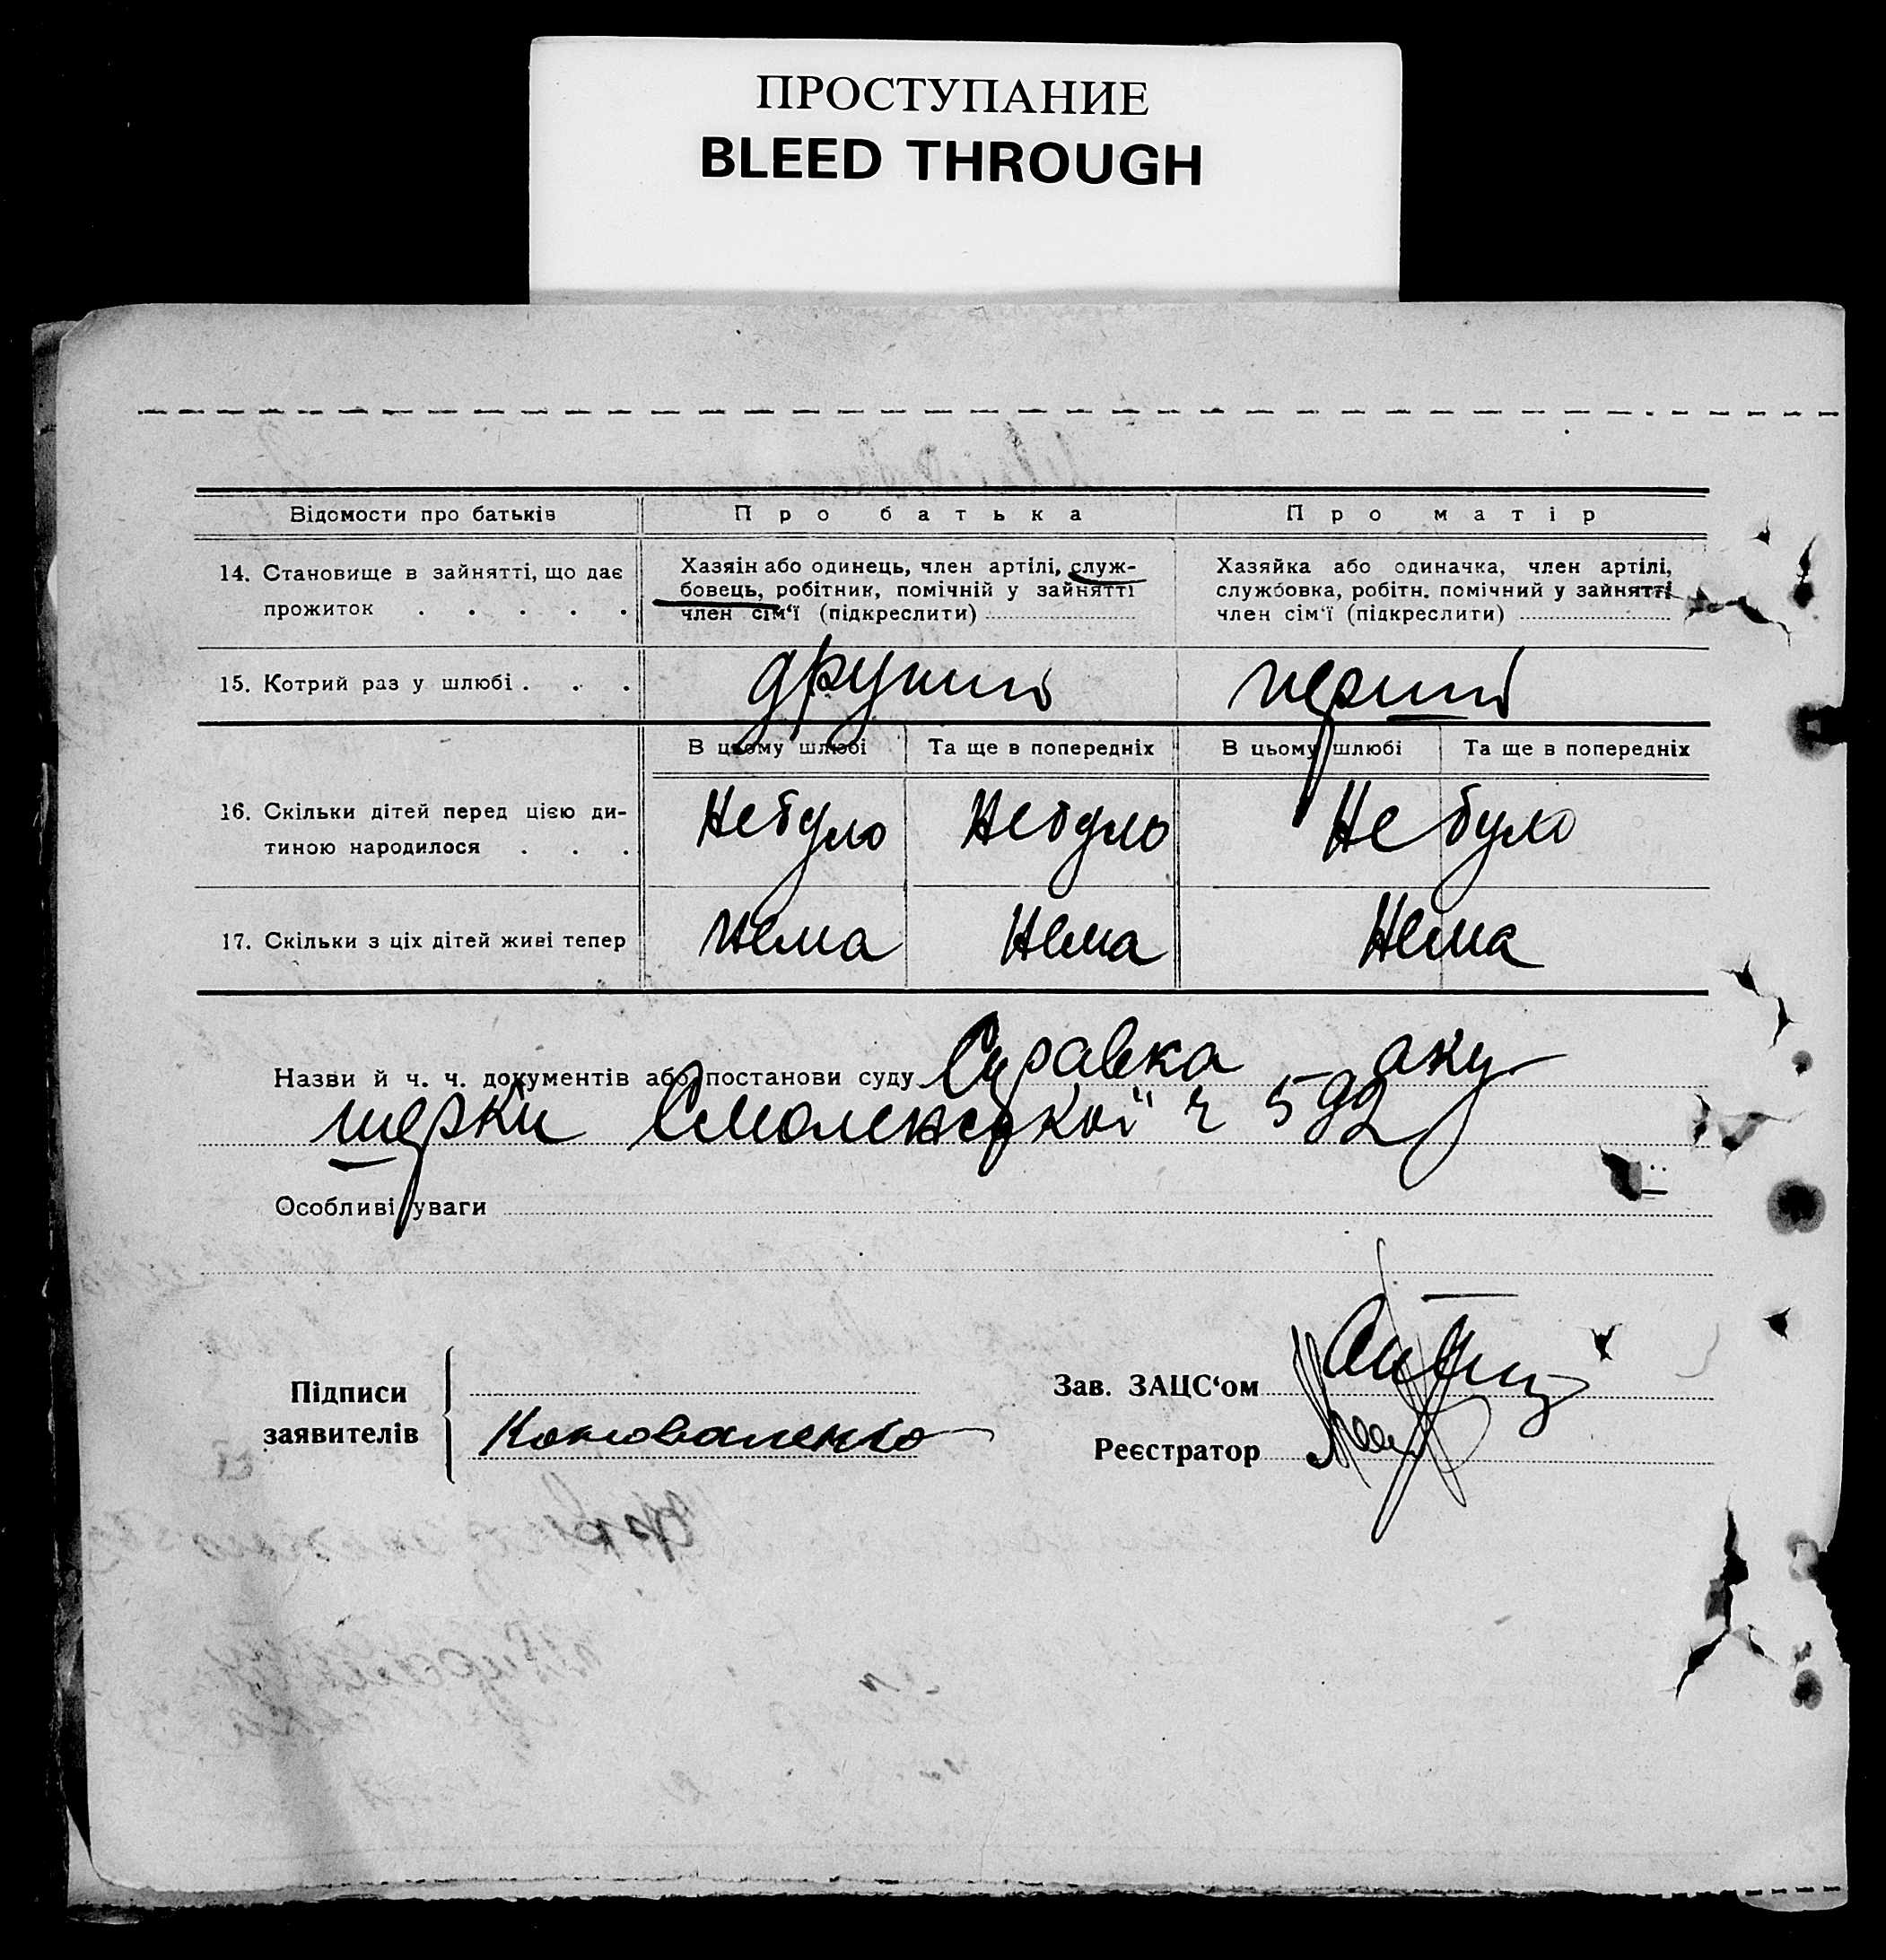 ПРОСТУПАНИЕ
BLEED THROUGH
Відомости про батьків
Про батька
Про матір
14. Становище в зайнятті, що дає
прожиток . . . . .
Хазяін або одинець, член артілі, служ-
бовець, робітник, помічній у зайнятті
член сім‘ї (підкреслити)
Хазяйка або одиначка, член артілі,
службовка, робітн. помічний у зайнятті
член сім‘ї (підкреслити)
15. Котрий раз у шлюбі . . .
другий
перший
В цьому шлюбі
Та ще в попередніх
В цьому шлюбі
Та ще в попередніх
16. Скільки дітей перед цією ди-
тиною народилося . . .
Не було
Не було
Не було
17. Скільки з ціх дітей живі тепер
Нема
Нема
Нема
Назви й ч. ч. документів або постанови суду Справка аку
шерки Смоленської ч 592
Особливі уваги
Підписи
заявителів
Коноваленко
Зав. ЗАЦС‘ом
Реєстратор